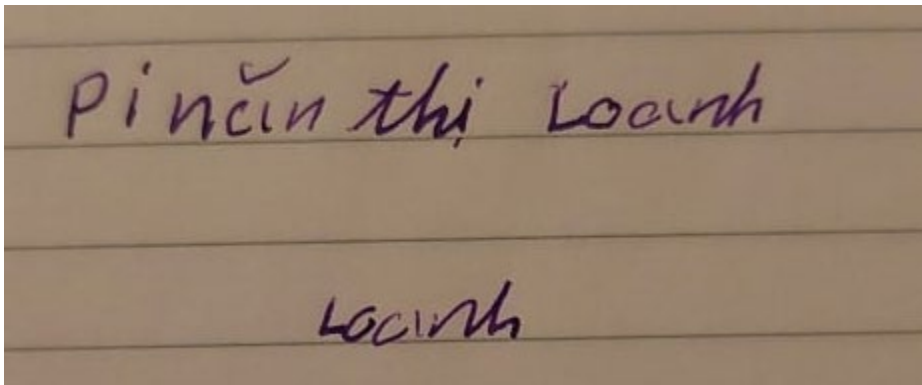 Pi năn thị Loanh
Loanh